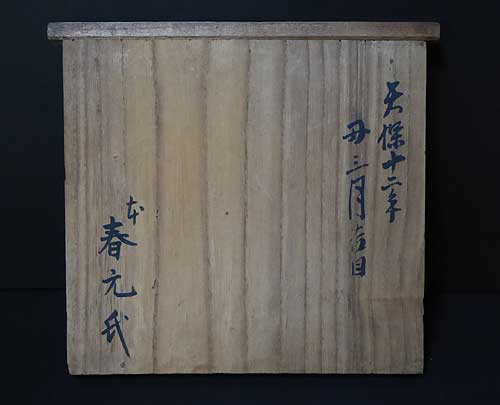 天保十二年
丑三月吉日
本
春元氏